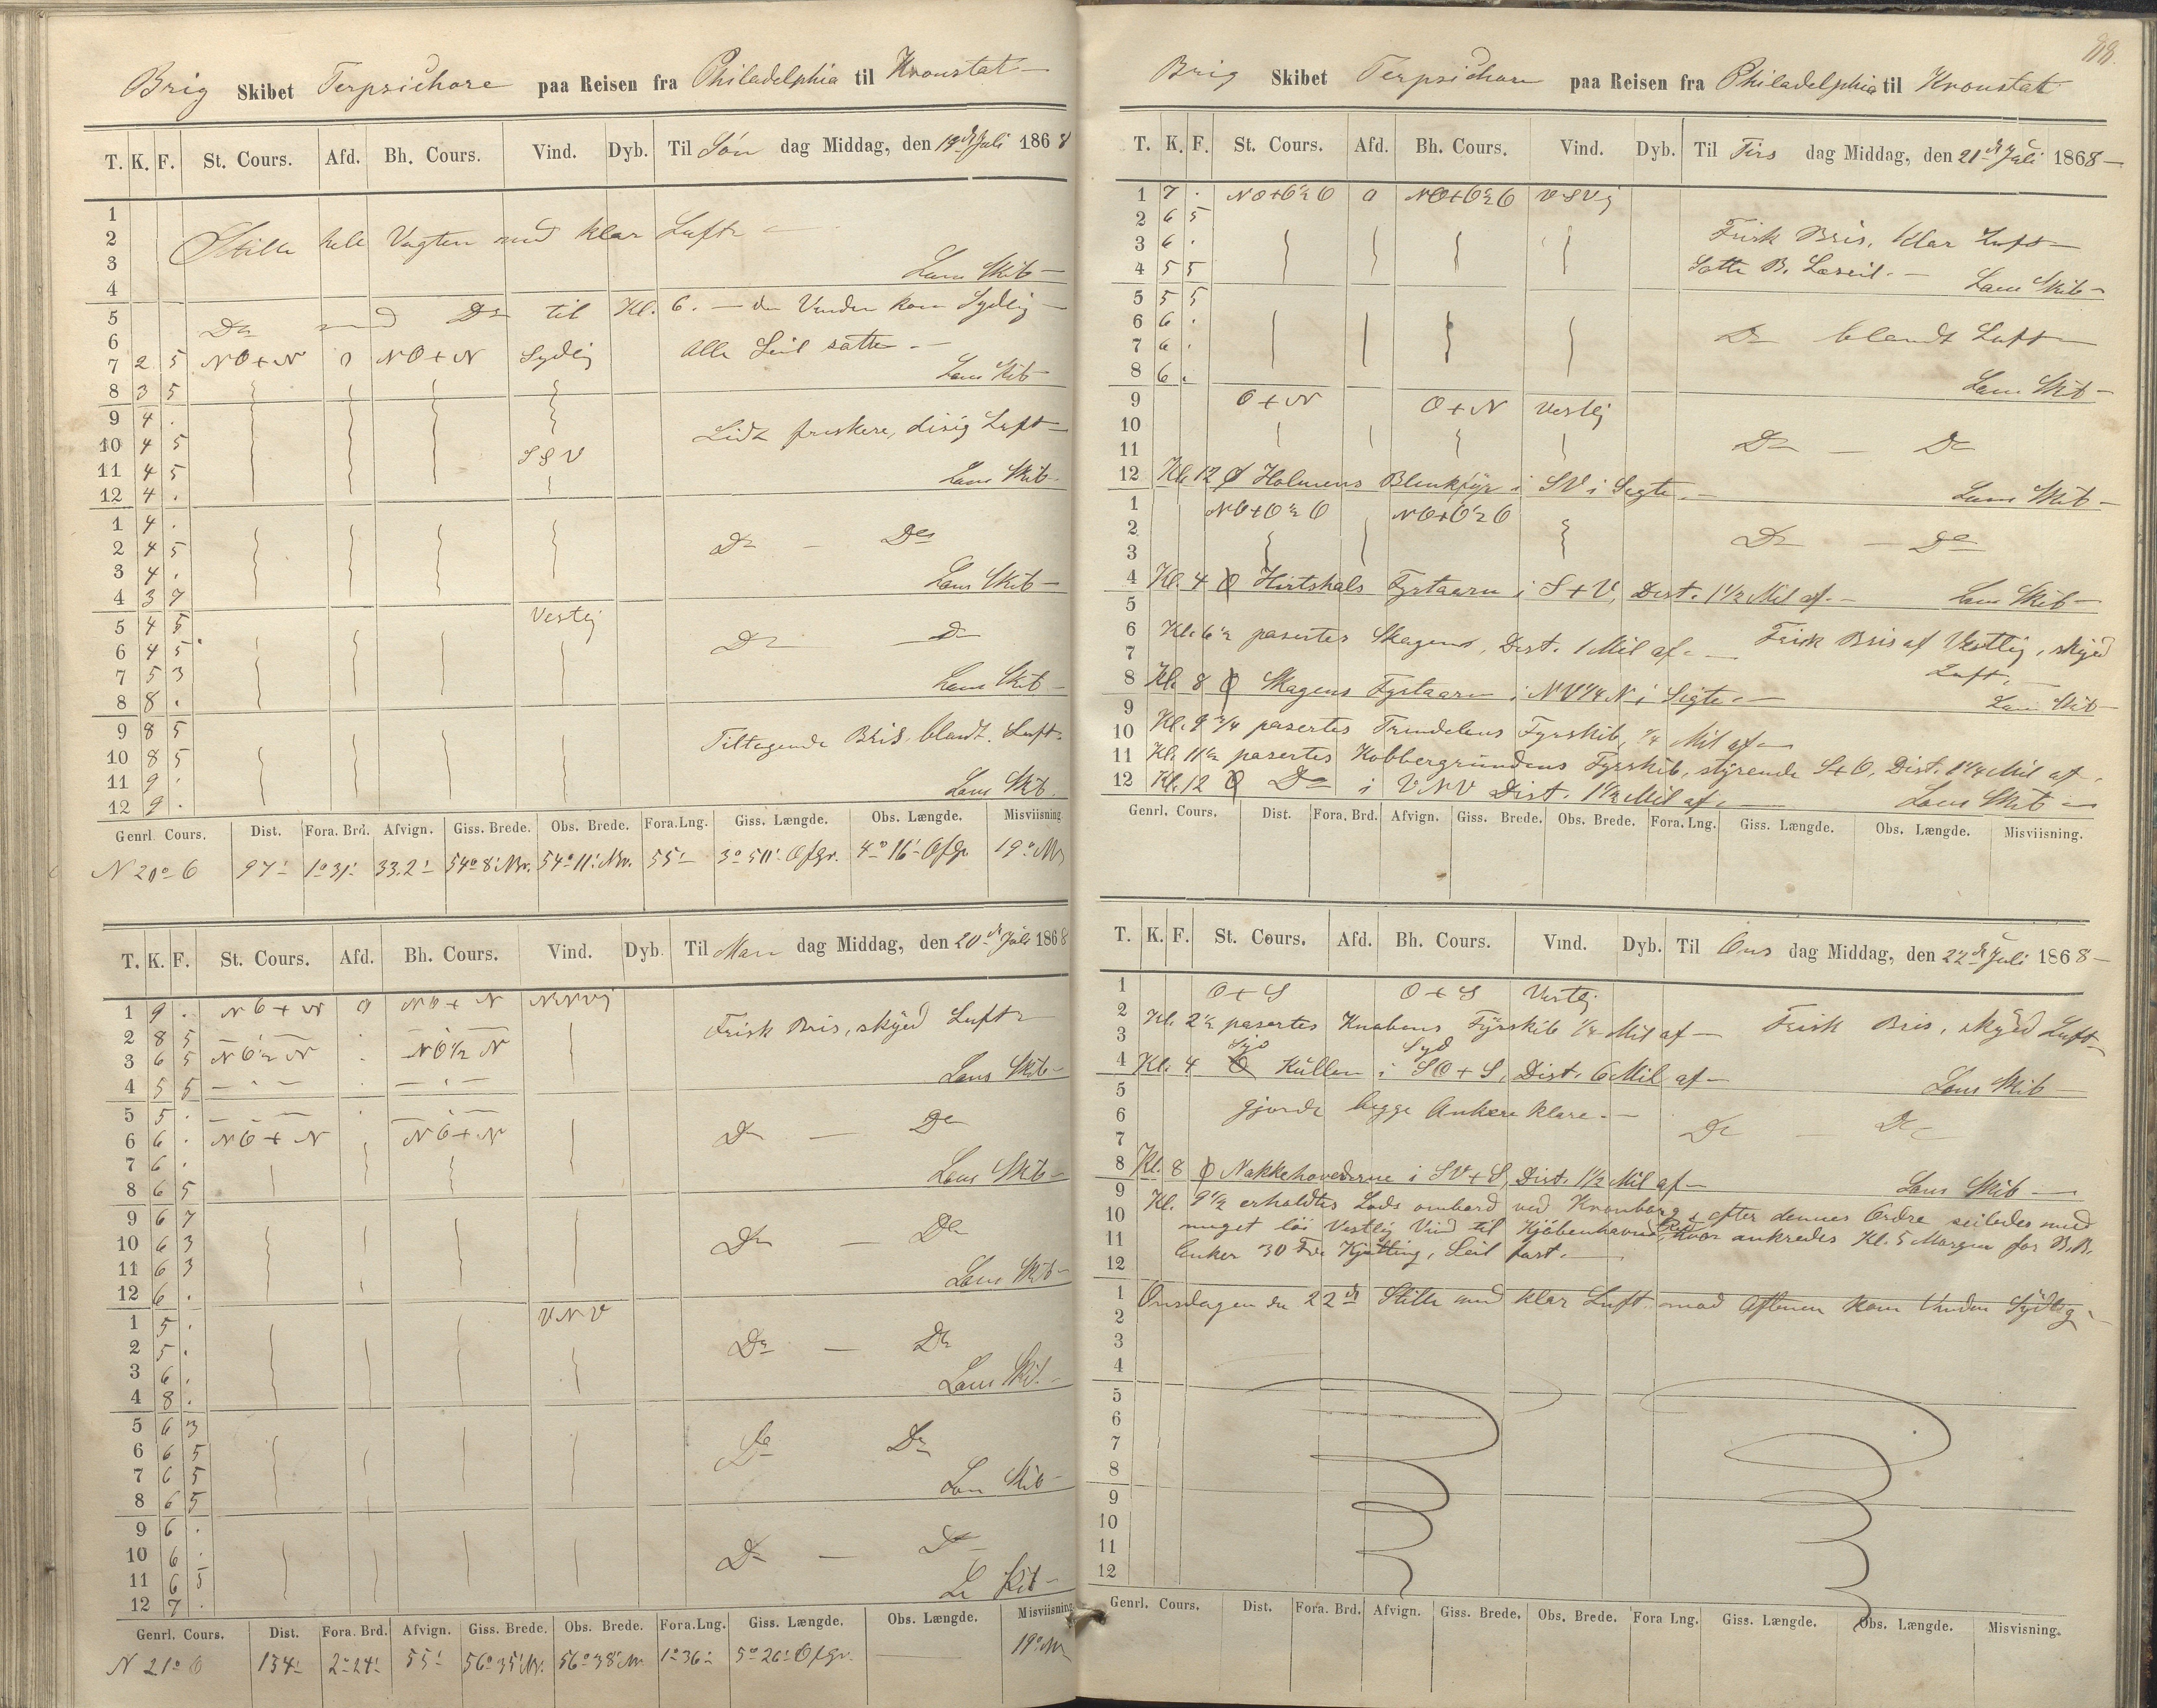 Brig Skibet Terpsichore paa Reisen fra Philadelphia til Kronstat
T. K. F. St. Cours. Afd. Bh. Cours. Vind. Dyb. Til Søn dag Middag, den 19de Juli 1868
1
2 Stille hele Vagten med klar Luft
3 Lens Skib
4
5 Do med Do til Kl. 6. — da Vinden kom Sydlig
6
7 2 5 NO+N 0 NO+N Sydlig Alle Seil satte
8 3 5 Lens Skib
9 4 .
10 4 5 Lidt friskere, disig Luft
11 4 5 SSV
12 4 . Lens Skib
1 4 .
2 4 5 Do — Do
3 4 .
4 3 7 Lens Skib
5 4 5 Vestlig
6 4 5 Do — Do
7 5 3
8 8 . Lens Skib
9 8 5
10 8 5 Tiltagende Bris blandt Luft
11 9 .
12 9 . Lens Skib
Genrl. Cours. Dist. Fora. Brd. Afvign. Giss. Brede. Obs. Brede. Fora.Lng. Giss. Længde. Obs. Længde. Misviisning
N 20° O 97' 1° 31' 33.2' 54° 8' Nr. 54° 11' Nr. 55' 3° 50' Ofgr. 4° 16' Ofgr 19° NV
T. K. F. St. Cours. Afd. Bh. Cours. Vind. Dyb. Til Man dag Middag, den 20de Juli 1868
1 9 . NO+N 0 NO+N NNV
2 8 5 Frisk Bris, skyed Luft
3 6 5 NO½N . NO½N
4 5 5 Lens Skib
5 5 .
6 6 . NO+N NO+N Do — Do
7 6 .
8 6 5 Lens Skib
9 6 7
10 6 3 Do — Do
11 6 3
12 6 . Lens Skib
1 5 . VNV
2 5 . Do — Do
3 6 .
4 8 . Lens Skib
5 6 3
6 6 5 Do Do
7 6 5
8 6 5 Lens Skib
9 6 .
10 6 . Do — Do
11 6 5
12 7 . Ls Skib
Genrl. Cours. Dist. Fora. Brd. Afvign. Giss. Brede. Obs. Brede. Fora.Lng. Giss. Længde. Obs. Længde. Misviisning
N 21° O 134' 2° 24' 55' 56° 35' Nr. 56° 38' Nr 1° 36' 5° 26' Ofgr. 19° NV
88.
Brig Skibet Terpsichore paa Reisen fra Philadelphia til Kronstat
T. K. F. St. Cours. Afd. Bh. Cours. Vind. Dyb. Til Tirs dag Middag, den 21de Juli 1868
1 7 . NO+O½O 0 NO+O½O VSV
2 6 5
3 6 . Frisk Bris, klar Luft
4 5 5 Satte B. Læseil. Lens Skib
5 5 5
6 6 .
7 6 . Do blandt Luft
8 6 . Lens Skib
9 O+N O+N Vestlig
10
11 Do — Do
12 Kl. 12 Holmens Blinkfyr i SV i Sigte. Lens Skib
1 NO+O½O NO+O½O
2
3 Do — Do
4 Kl. 4 Hirtshals Fyrtaarn i S+V, Dist. 1½ Mil af. Lens Skib
5
6 Kl. 6½ pasertes Skagens, Dist. 1 Mil af. Frisk Bris af Vestlig, skyed
7 Luft,
8 Kl. 8 Skagens Fyrtaarn i NV¼N i Sigte. Lens Skib
9
10 Kl. 9¾ pasertes Trindelens Fyrskib, ¼ Mil af
11 Kl. 11½ pasertes Kobbergrundens Fyrskib, styrende S+O, Dist. 1¼ Mil af.
12 Kl. 12 Do i VNV Dist. 1½ Mil af. Lens Skib
Genrl. Cours. Dist. Fora. Brd. Afvign. Giss. Brede. Obs. Brede. Fora. Lng. Giss. Længde. Obs. Længde. Misviisning.
T. K. F. St. Cours. Afd. Bh. Cours. Vind. Dyb. Til Ons dag Middag, den 22de Juli 1868
1 O+S O+S Vestlig
2 Kl. 2½ pasertes Knobens Fyrskib ¼ Mil af Frisk Bris, skyed Luft
3 Syd Syd
4 Kl. 4 Kullen i SO+S, Dist. 6 Mil af Lens Skib
5
6 gjorde begge Ankere klare.
7 Do — Do
8 Kl. 8 Nakkehovederne i SV+S, Dist. 1½ Mil af Lens Skib
9
10 Kl. 9½ erholdtes Lods ombord ved Kronborg & efter dennes Ordre seiledes med
11 meget løi Vestlig Vind til Kjøbenhavns Red, hvor ankredes Kl. 5 Morgen for B.B.
12 Anker 30 Fv. Kjætting, Seil fast.
1 Onsdagen den 22de Stille med klar Luft mod Aftenen kom Vinden Sydlig
2
3
4
5
6
7
8
9
10
11
12
Genrl. Cours. Dist. Fora. Brd. Afvign. Giss. Brede. Obs. Brede. Fora Lng. Giss. Længde. Obs. Længde. Misvisning.